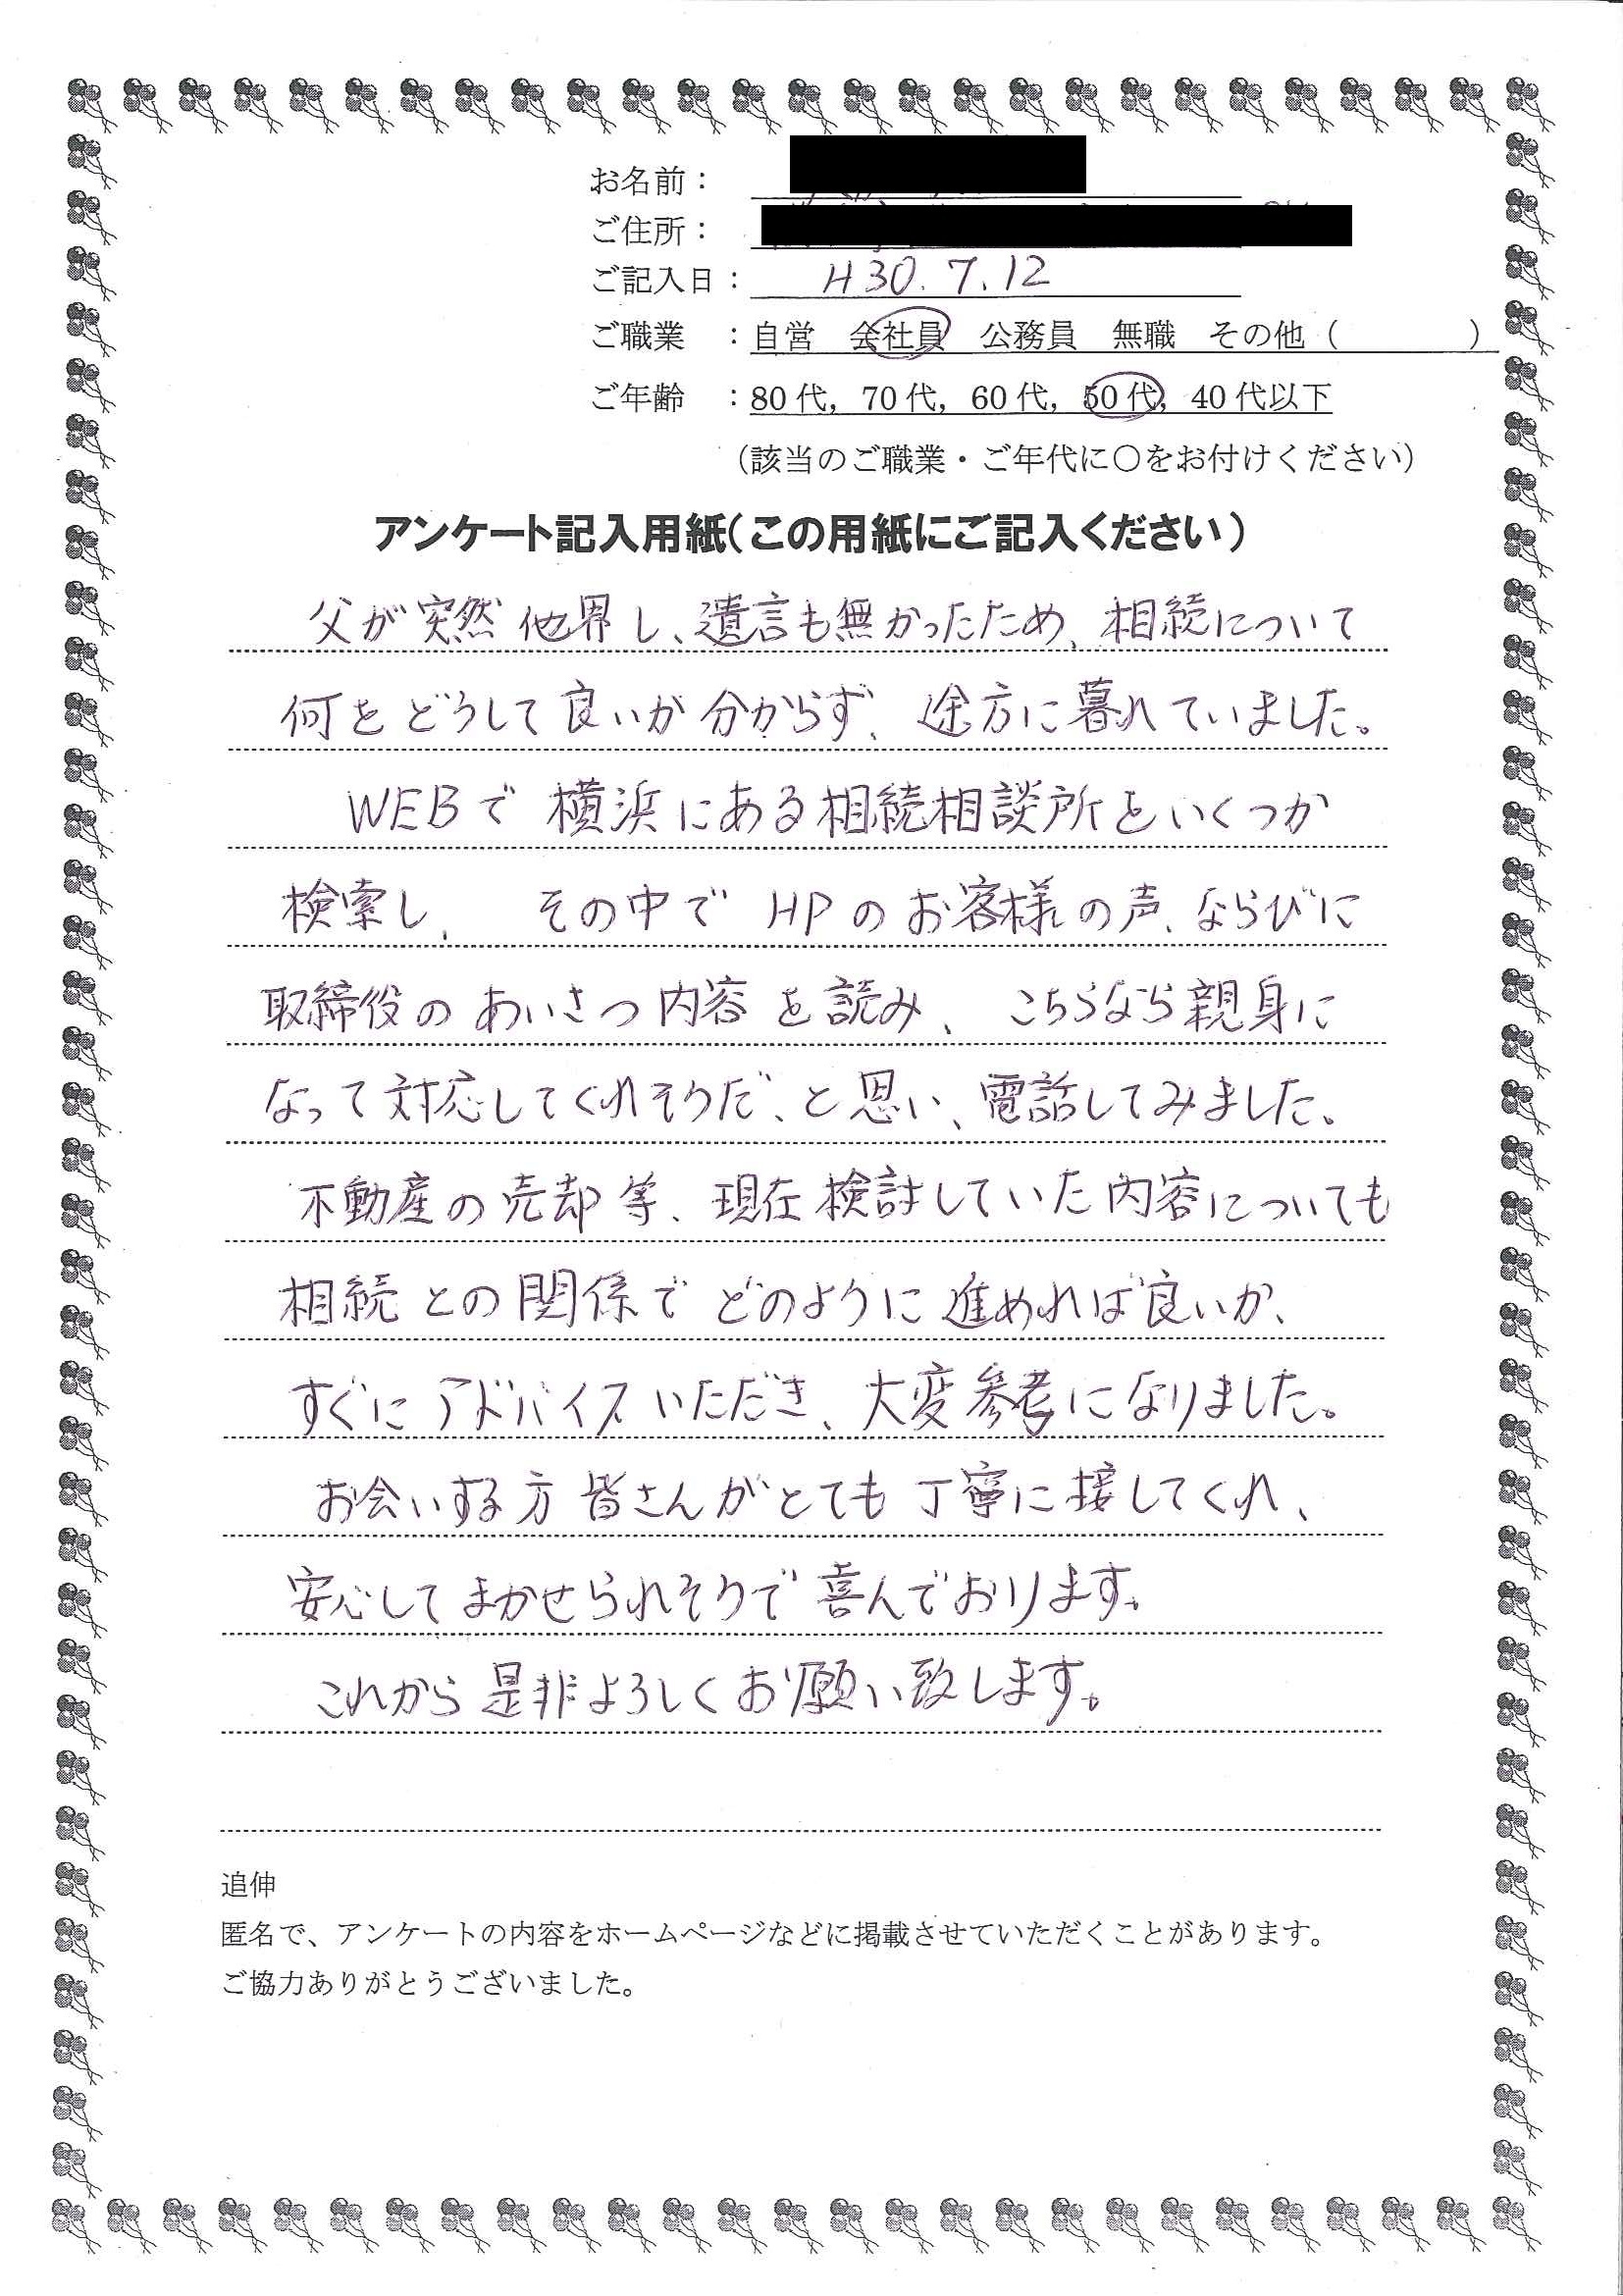 お名前：
ご住所：
ご記入日： H30.7.12
ご職業　：自営　会社員　公務員　無職　その他（　　　　）
ご年齢　：80代，70代，60代，50代，40代以下
（該当のご職業・ご年代に〇をお付けください）
アンケート記入用紙（この用紙にご記入ください）
父が突然他界し、遺言も無かったため、相続について
何をどうして良いか分からず、途方に暮れていました。
WEBで横浜にある相続相談所をいくつか
検索し、その中でHPのお客様の声、ならびに
取締役のあいさつ内容を読み、こちらなら親身に
なって対応してくれそうだ、と思い、電話してみました、
不動産の売却等、現在検討していた内容についても
相続との関係でどのように進めれば良いか、
すぐにアドバイスいただき、大変参考になりました。
お会いする方皆さんがとても丁寧に接してくれ、
安心してまかせられそうで喜んでおります。
これから是非よろしくお願い致します。
追伸
匿名で、アンケートの内容をホームページなどに掲載させていただくことがあります。
ご協力ありがとうございました。